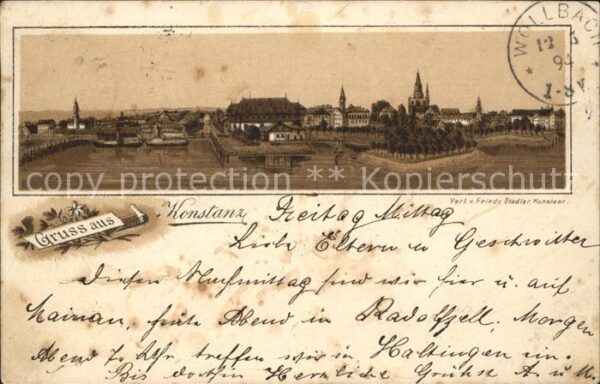 WOLLBACH
12 5
94
1-8N
copy protection ** copy protection **
Verl. v. Friedr. Stadler, Konstanz.
Gruss aus
Konstanz Freitag Mittag
Liebe Eltern u Geschwister
Diesen Nachmittag sind wir hier u. auf
Mainau, heute Abend in Radolfzell. Morgen
Abend 7 Uhr. treffen wir in Haltingen ein.
Bis dorthin Herzliche Grüße A. u M.